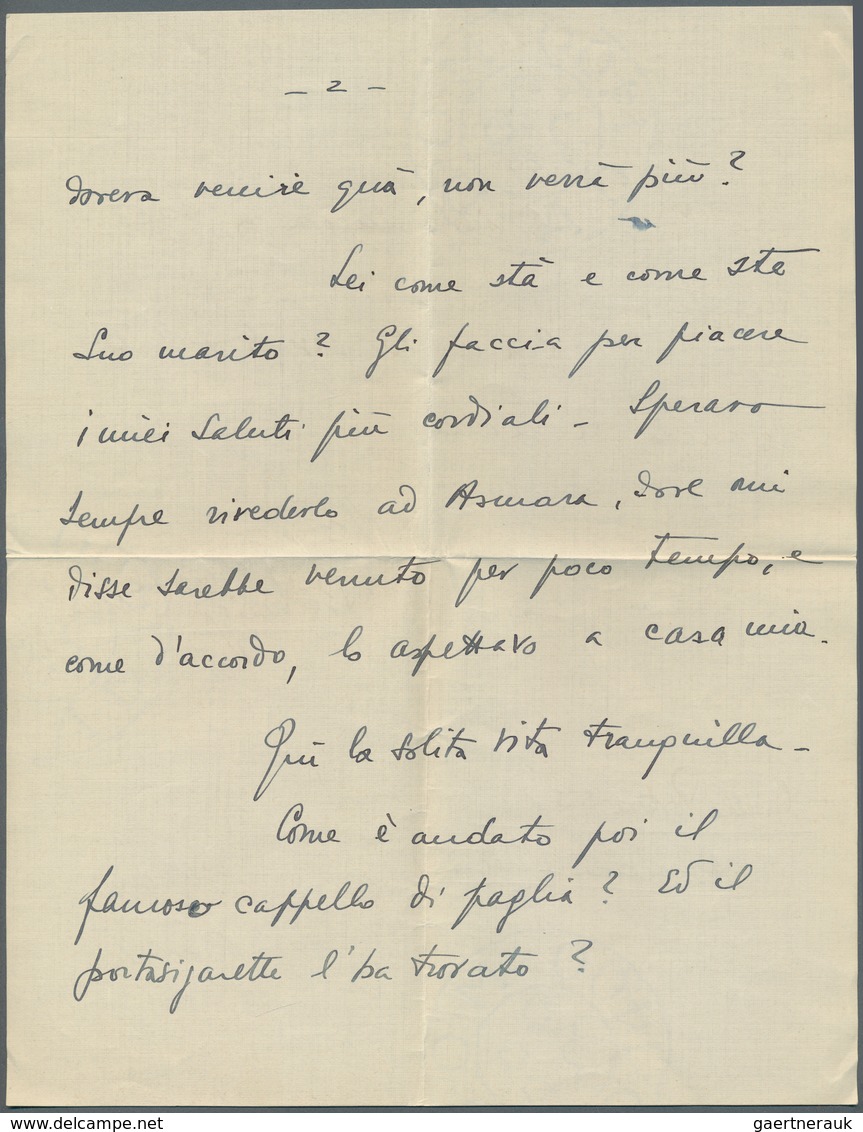 - 2 -
doveva venire quà, non verrà più?
Lei come stà e come sta
Suo marito? Gli faccia per piacere
i miei saluti più cordiali - Speravo
sempre rivederlo ad Asmara, dove mi
disse sarebbe venuto per poco tempo, e
come d'accordo, lo aspettavo a casa mia.
Quì la solita vita tranquilla -
Come è andato poi il
famoso cappello di paglia? Ed il
portasigarette l'ha trovato?
delcampe.net
gaertnerauk